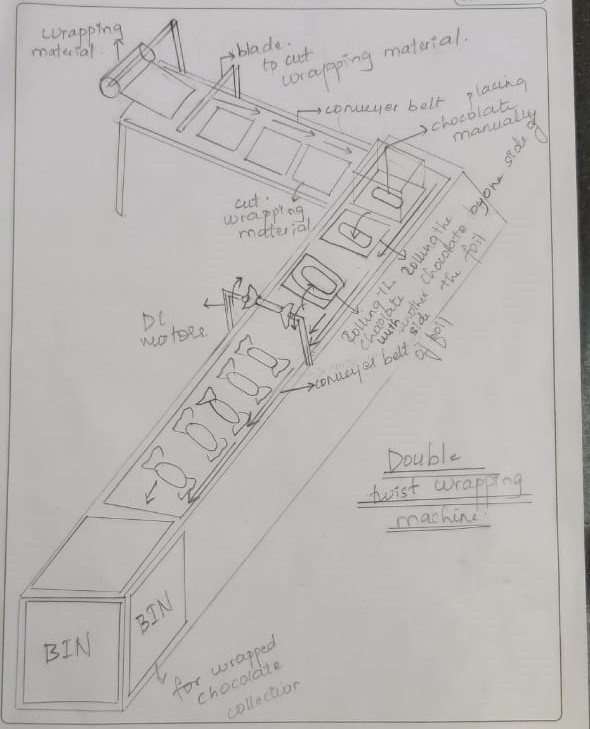 wrapping
material.
blade.
to cut
wrapping material.
conveyer belt
placing
chocolate
manually
cut
wrapping
material
rolling the
chocolate by one side of
the foil
rolling the
chocolate
with another
side
of foil
DC
motors.
conveyer belt
Double
twist wrapping
machine.
BIN
BIN
for wrapped
chocolate
collection